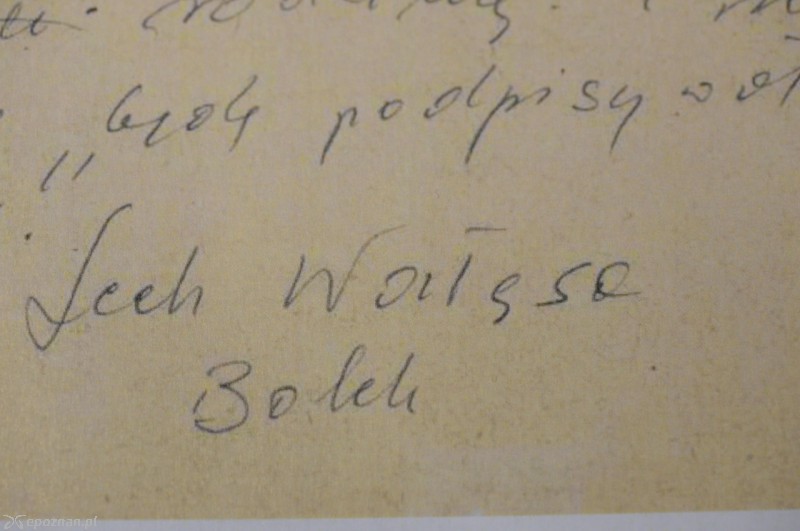 „ będę podpisywał
Lech Wałęsa
Bolek
epoznan.pl